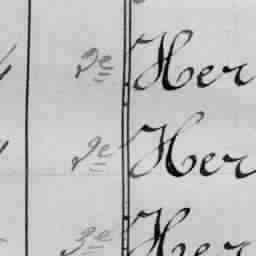 2e Her
2e Her
3e Her